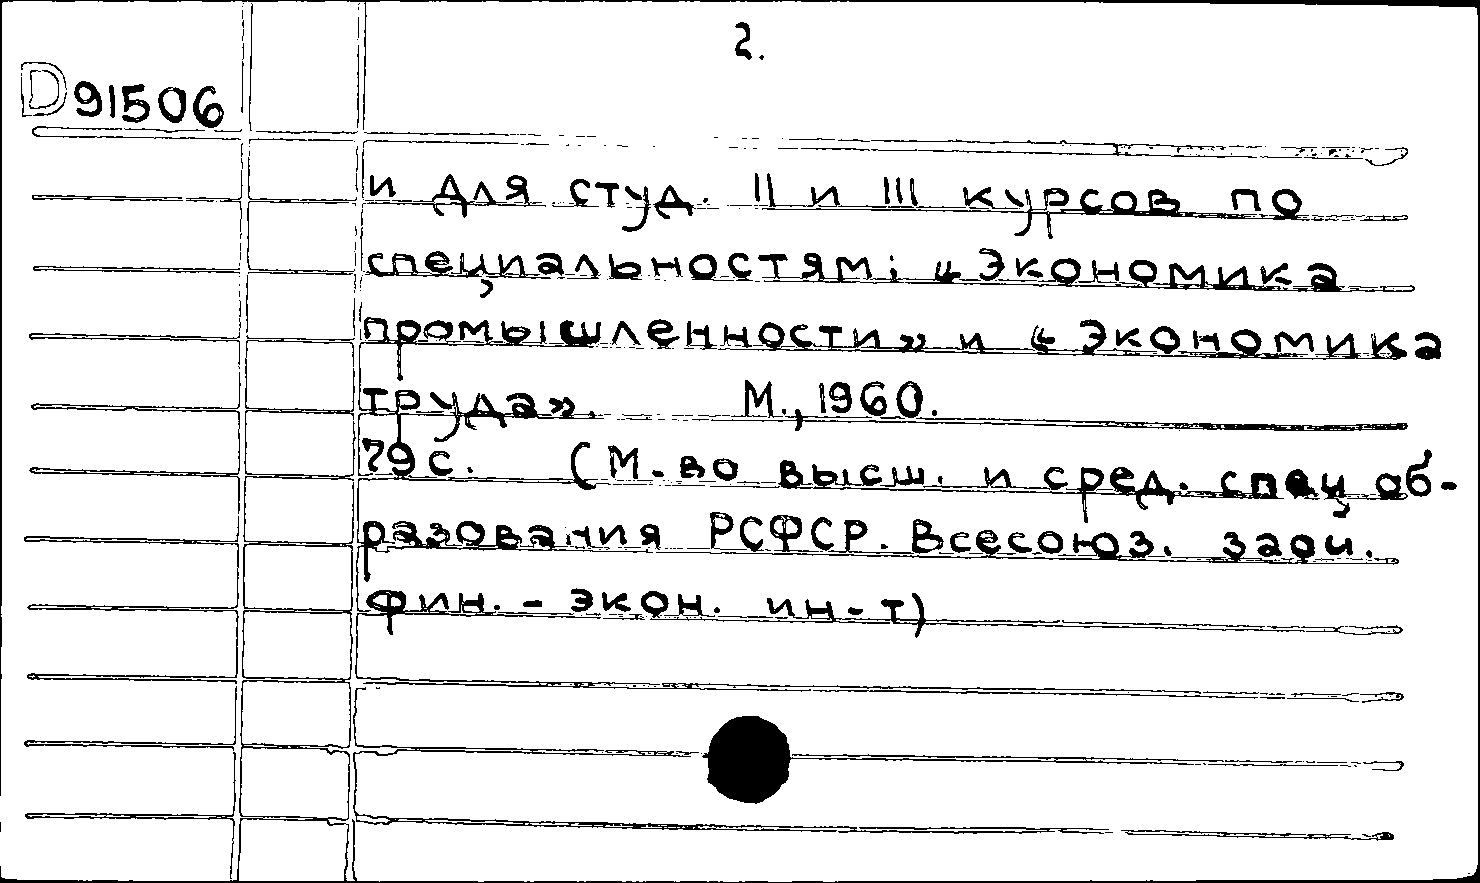 2.
D91506
и для студ. II и III курсов по
специальностям: «Экономика
промышленности» и «Экономика
труда». М., 1960.
79с. (М-во высш. и сред. спец об-
разования РСФСР. Всесоюз. заоч.
фин.-экон. ин-т)